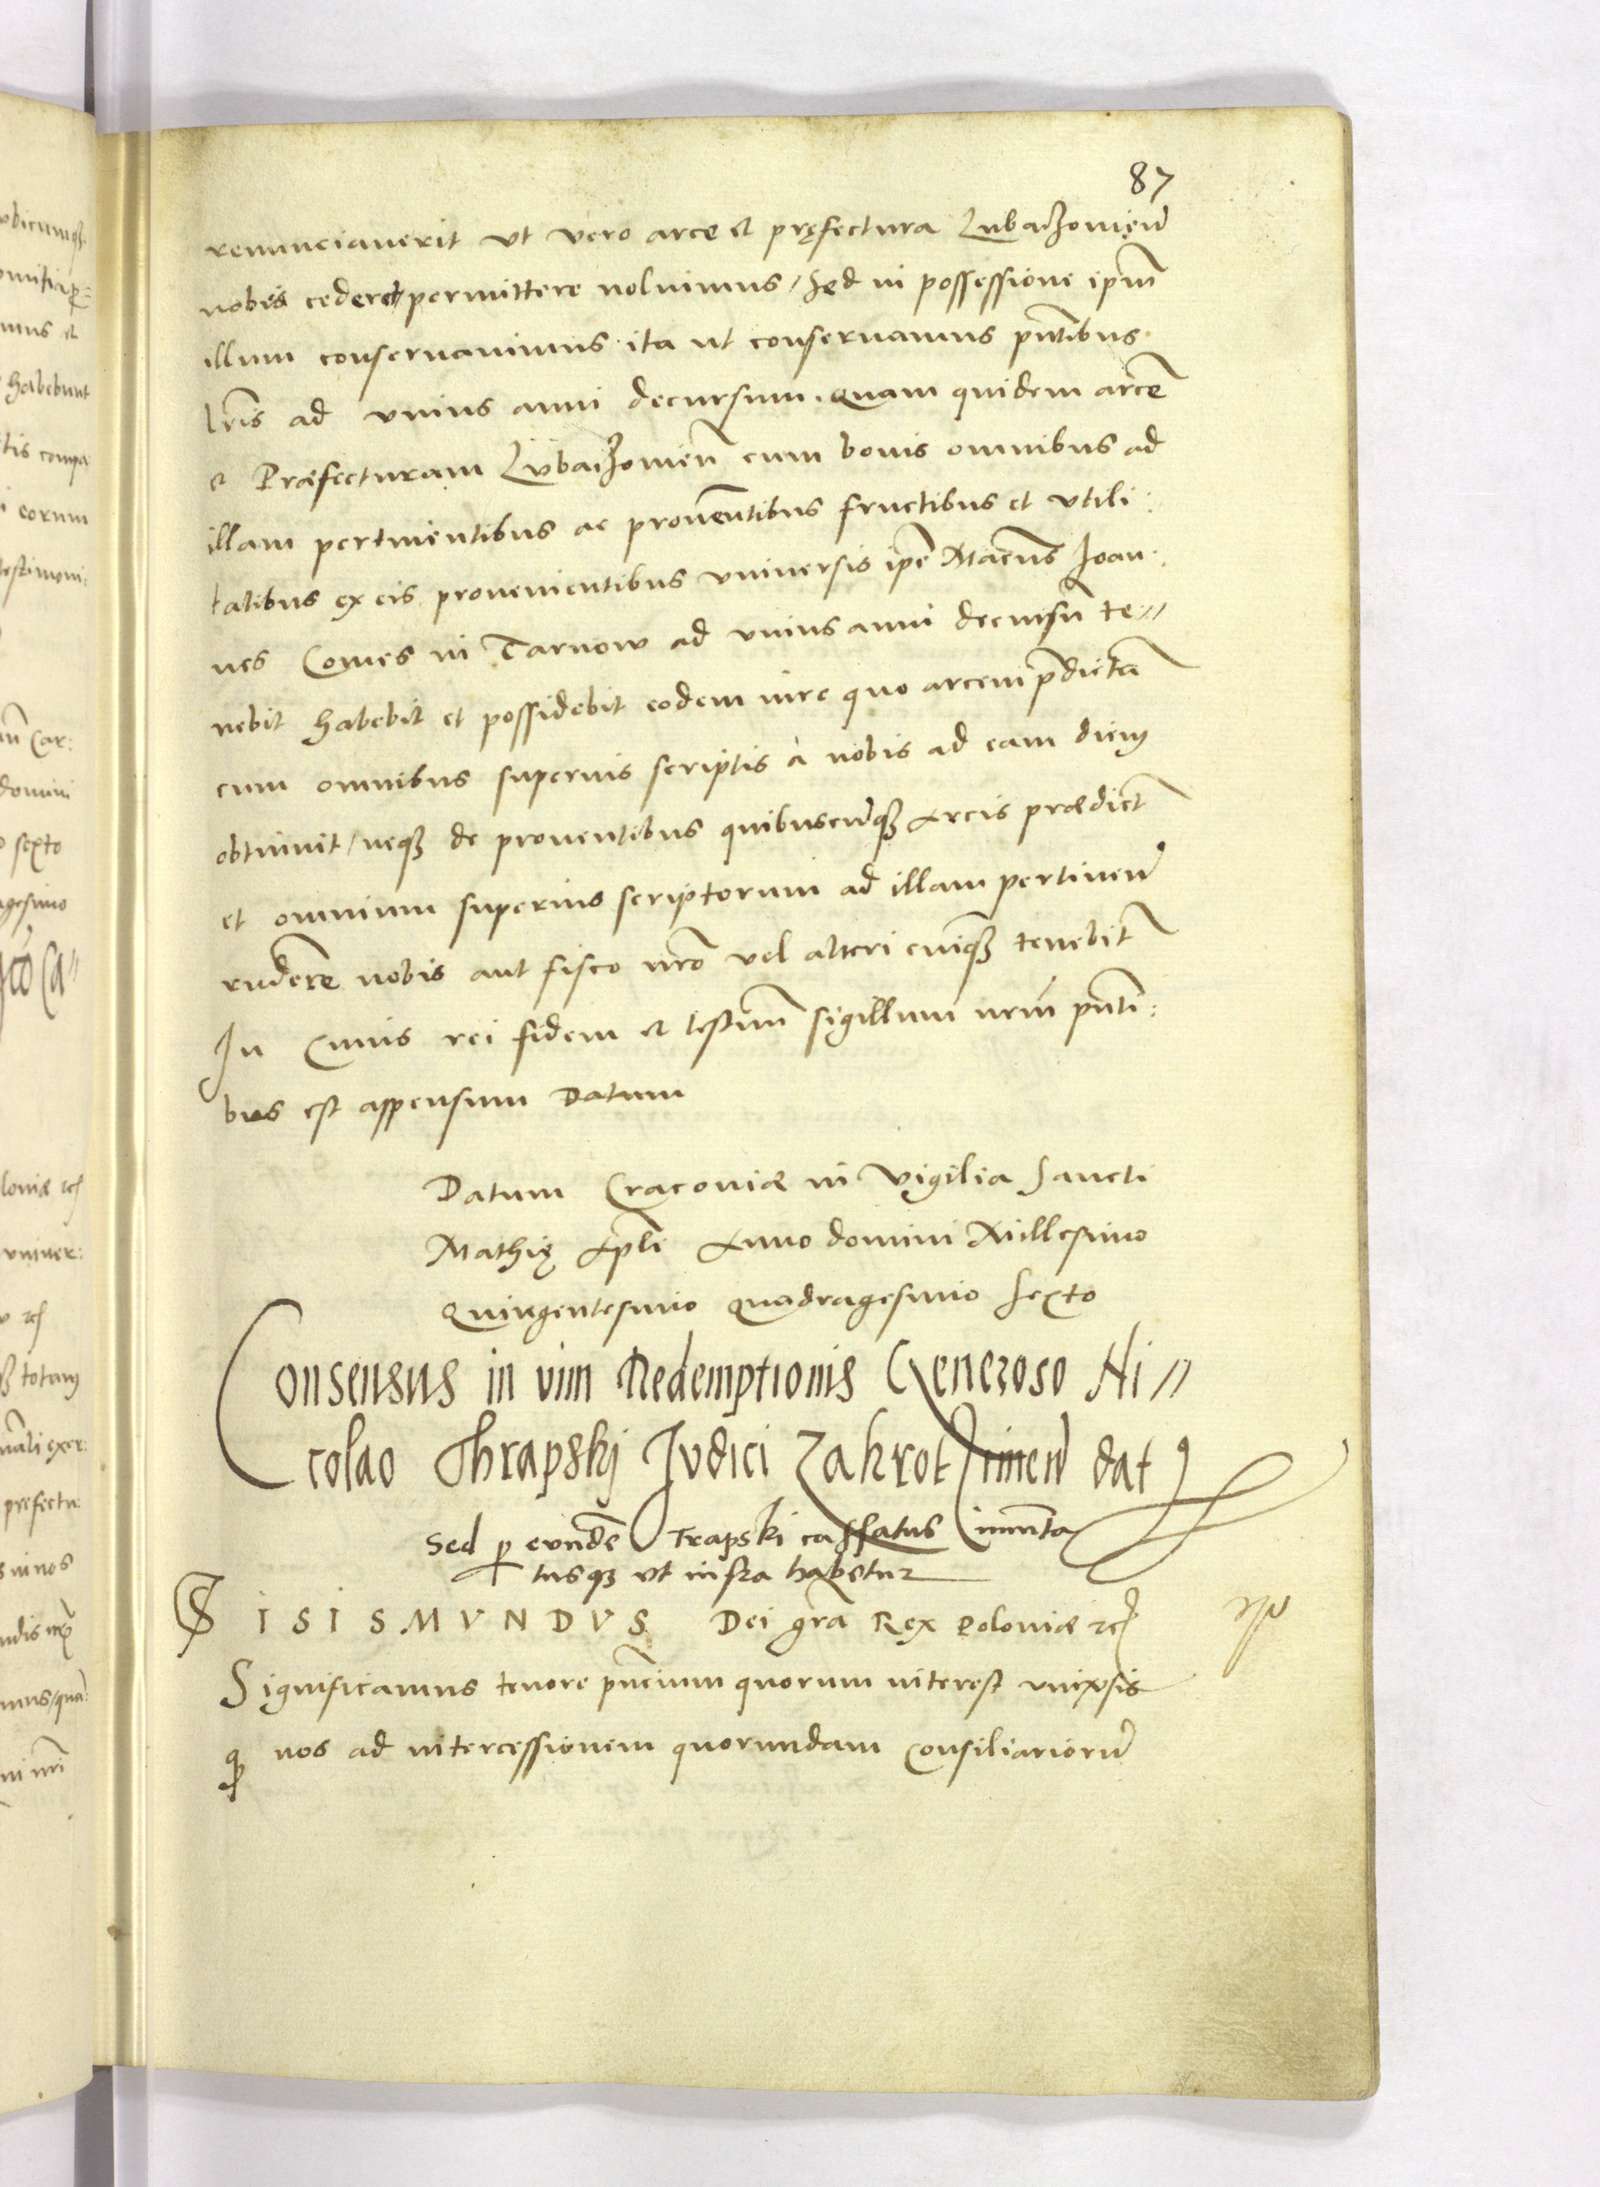 87
renunciaverit ut vero arce et pręfectura Lubaczovien̄
nobis cederet permittere noluimus / Sed in possessione ip̄m
illum conservavimus ita ut conservamus pn̄tibus
lr̄is ad unius anni decursum. Quam quidem arcē
et Præfecturam Lubaczovien̄ cum bonis omnibus ad
illam pertinentibus ac proventibus fructibus et utili:
tatibus ex eis provenientibus universis ip̄e Mag̅cus Joan:
nes Comes in Tarnow ad unius anni decursū te//
nebit habebit et possidebit eodem iure quo arcem p̄dictā
cum omnibus superius scriptis à nobis ad eam diem
obtinuit / neqꝫ de proventibus quibuscūqꝫ Arcis prædict̄
et omnium superius scriptorum ad illam pertinen̄
rndere nobis aut fisco nr̄o vel alteri cuiqꝫ tenebit̄
In Cuius rei fidem et testim̄ sigillum nr̄m pn̄ti:
bus est appensum Datum
Datum Cracoviæ in Vigilia Sancti
Mathię Apl̄i Anno domini Millesimo
Quingentesimo Quadragesimo Sexto
Consensus in vim Redemptionis Generoso Ni//
colao Thrapskj Judici Zakroczimen̄ datꝰ
Sed ꝑ eundē Trapski cassatus
tusqꝫ ut infra habetur
SISISMVNDVS Dei gr̄a Rex Poloniæ ꝛc̄
Significamus tenore pn̄cium quorum interest univ̄sis
nos ad intercessionem quorundam Consiliariorū